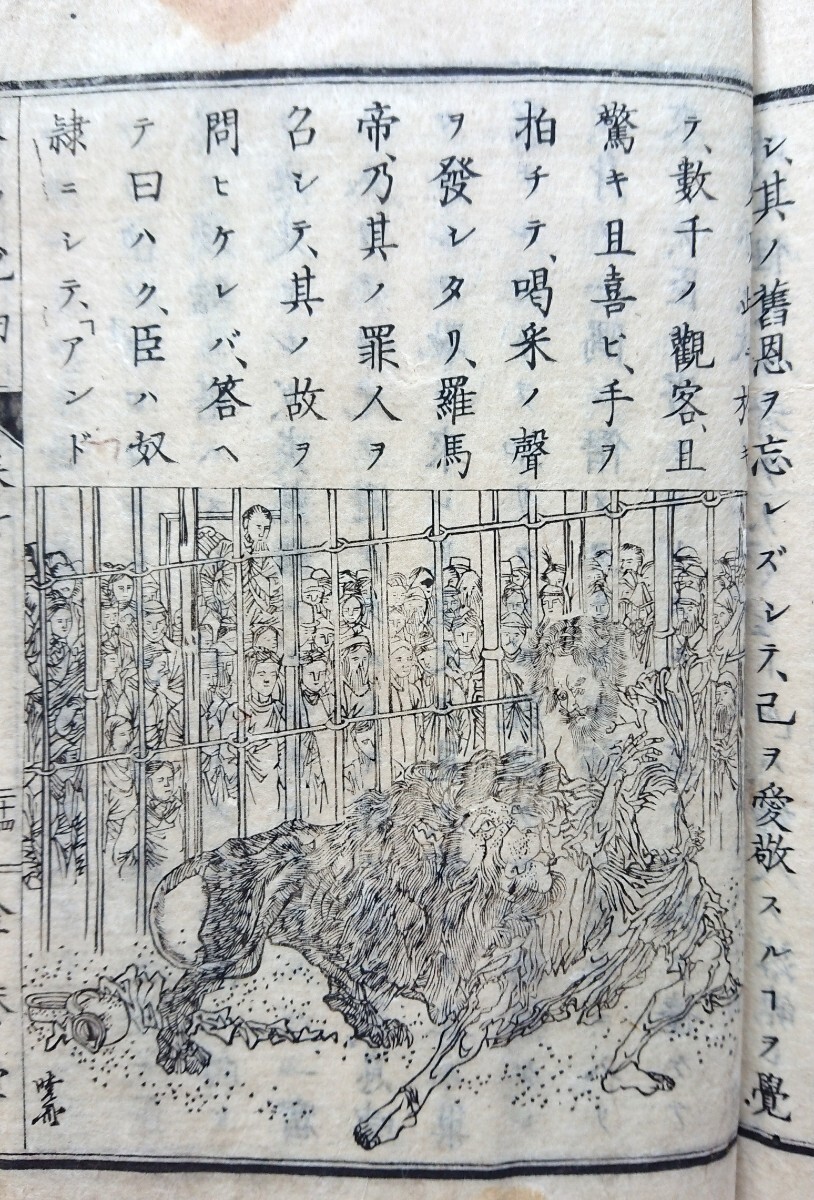 シ、其ノ舊恩ヲ忘レズシテ、己ヲ愛敬スルヿヲ覺
テ、數千ノ觀客、且
驚キ且喜ビ、手ヲ
拍チテ、喝采ノ聲
ヲ發シタリ、羅馬
帝、乃其ノ罪人ヲ
召シテ、其ノ故ヲ
問ヒケレバ、答ヘ
テ曰ハク、臣ハ奴
隷ニシテ、「アンド
二十四